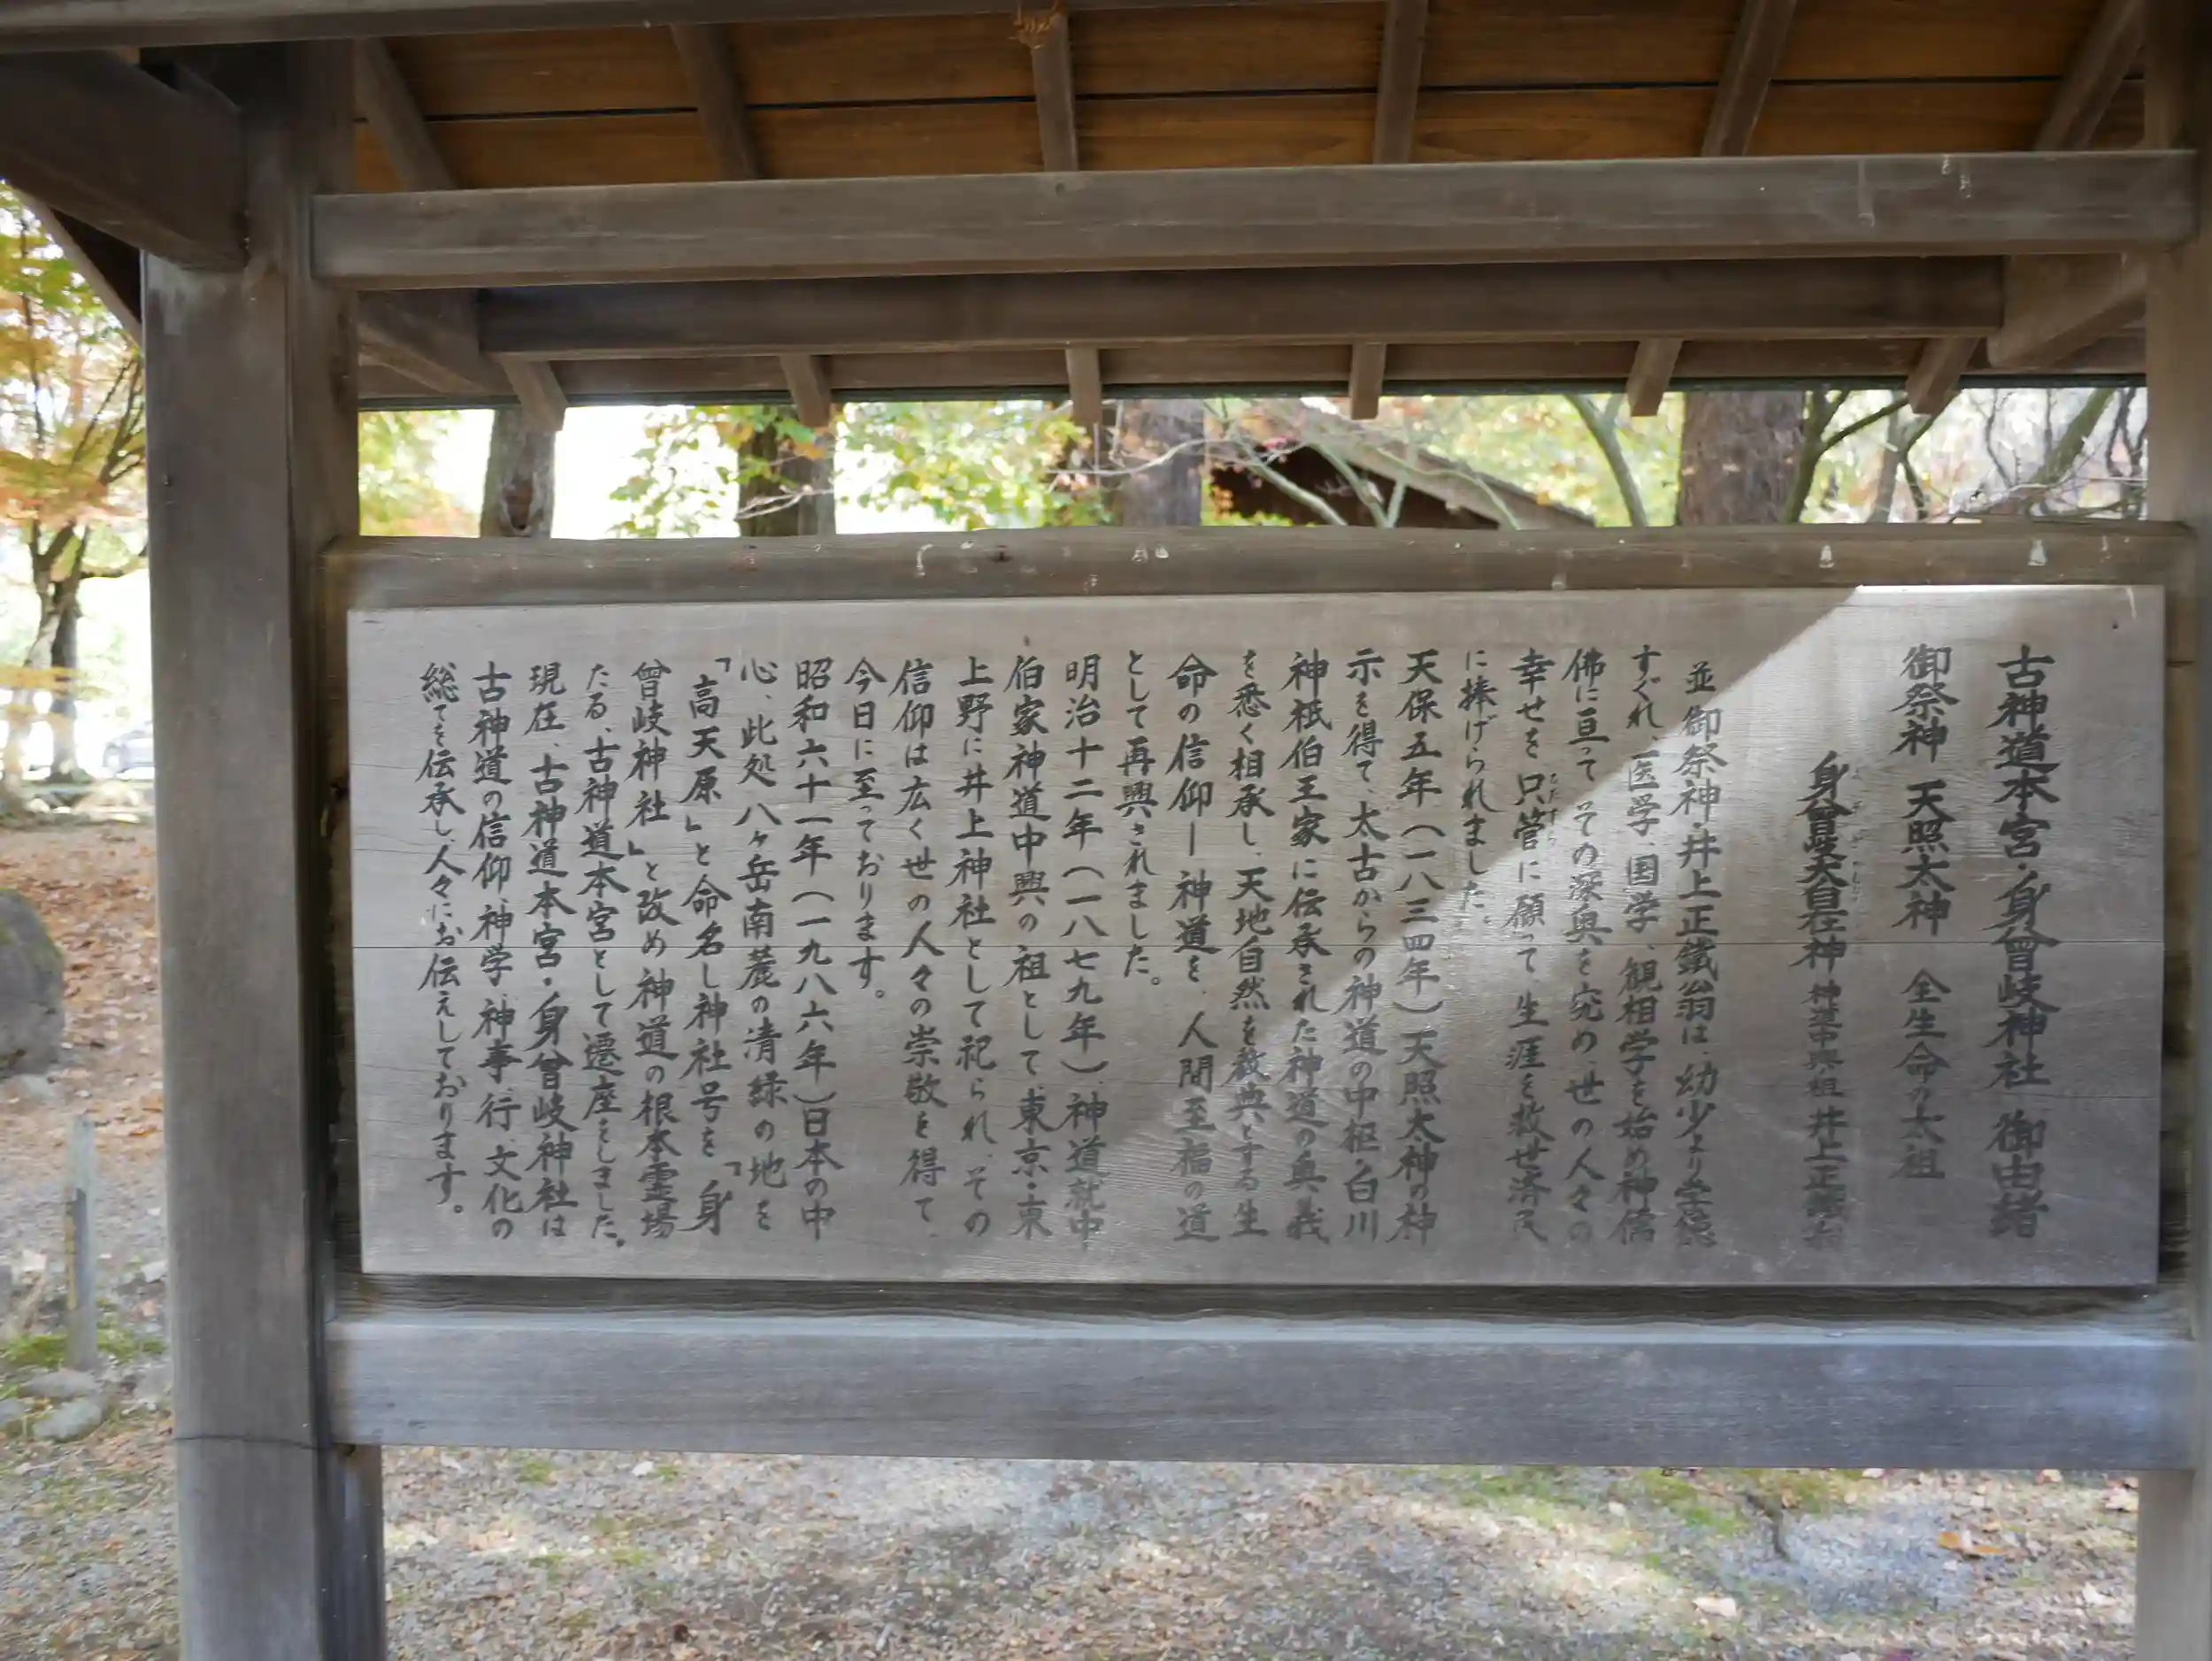 古神道本宮・身曾岐神社 御由緒
御祭神 天照太神 全生命の太祖
身曾岐天皇在神 神道中興祖 井上正鐵翁
並御祭神・井上正鐵翁は、幼少より学徳
すぐれ、医学、国学、観相学を始め神儒
佛に亘って、その深奥を究め、世の人々の
幸せを只管に願って、生涯を救世済民
に捧げられました。
天保五年(一八三四年)天照大神の神
示を得て、太古からの神道の中枢・白川
神祇伯王家に伝承された神道の奥義
を悉く相承し、天地自然を教典とする生
命の信仰―神道を、人間至福の道
として再興されました。
明治十二年(一八七九年)、神道就中、
伯家神道中興の祖として、東京・東
上野に井上神社として祀られ、その
信仰は広く世の人々の崇敬を得て、
今日に至っております。
昭和六十一年(一九八六年)日本の中
心、此処八ヶ岳南麓の清緑の地を
「高天原」と命名し神社号を「身
曾岐神社」と改め神道の根本霊場
たる、古神道本宮として遷座をしました。
現在、古神道本宮・身曾岐神社は
古神道の信仰、神学、神事、行、文化の
総てを伝承し、人々にお伝えしております。